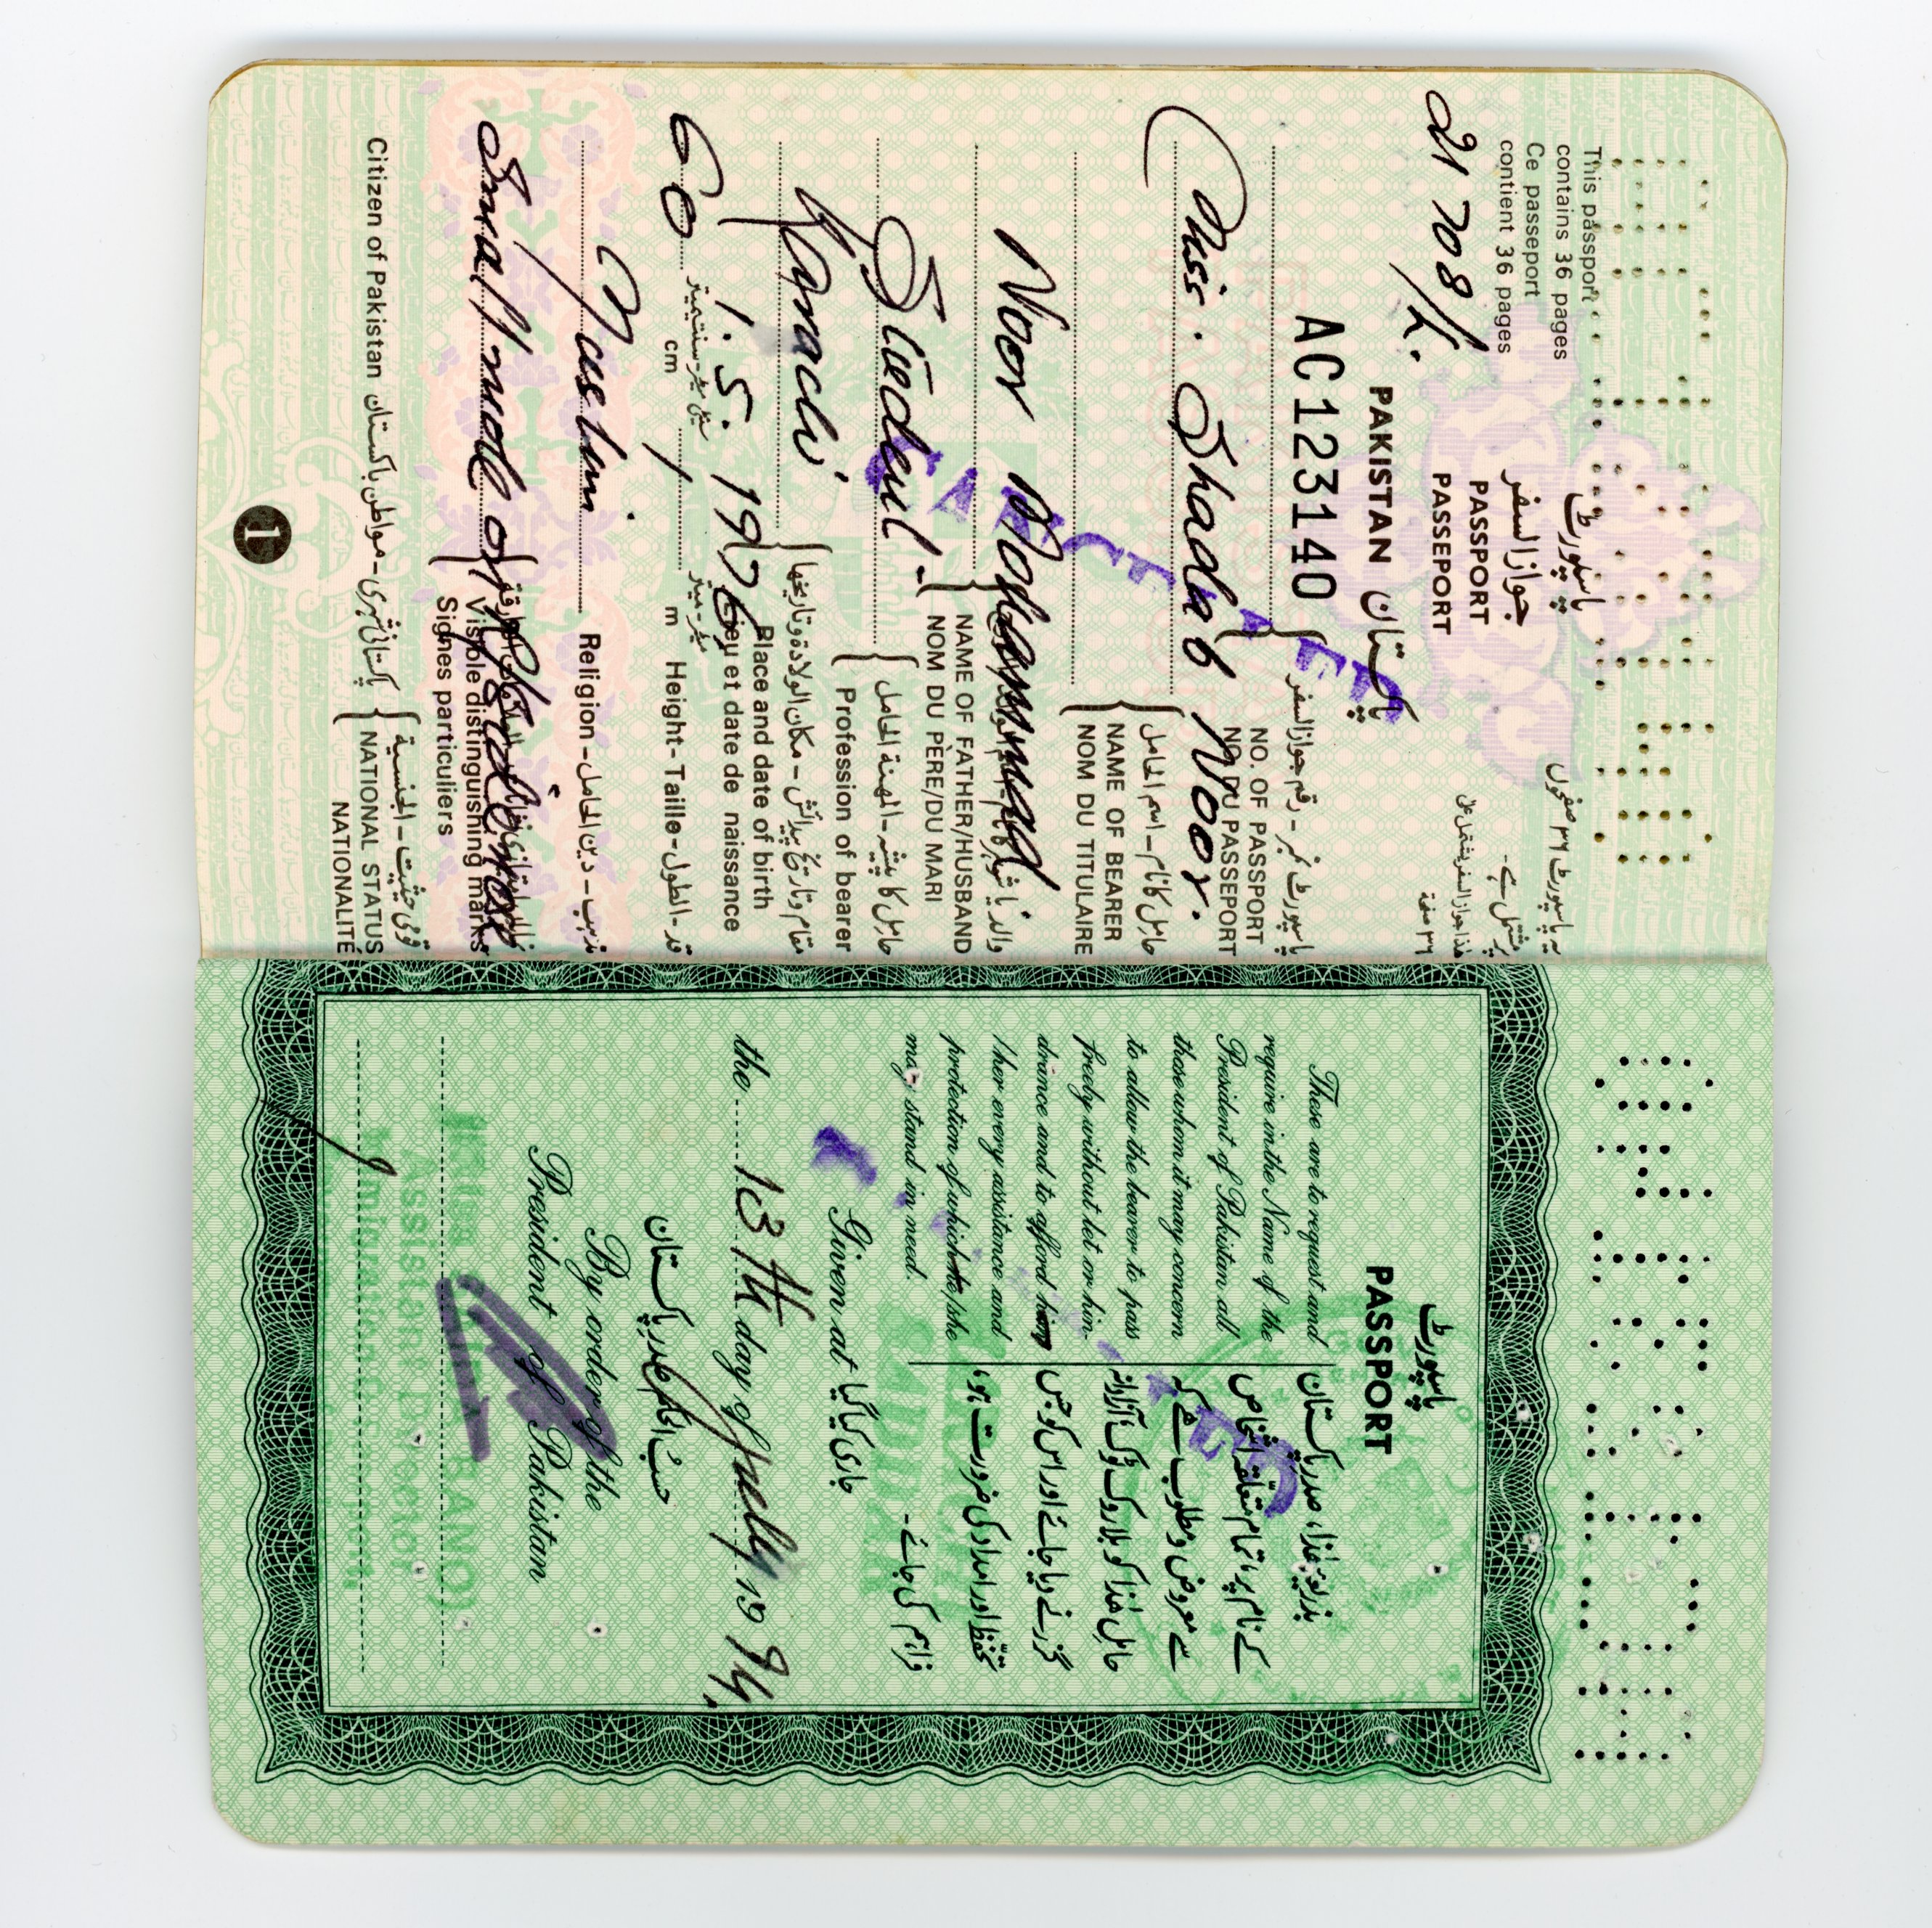 This passport
contains 36 pages
Ce passeport
contient 36 pages
پاسپورٹ
جواز السفر
PASSPORT
PASSEPORT
یہ پاسپورٹ ۳۶ صفحوں
پر مشتمل ہے۔
هذا جواز السفر يشتمل على
٣٦ صفحة
21708/K.
PAKISTAN پاکستان
AC123140
پاسپورٹ نمبر - رقم جواز السفر
NO. OF PASSPORT
NO. DU PASSEPORT
CANCELLED
Miss. Shadab Noor.
حامل کا نام - اسم الحامل
NAME OF BEARER
NOM DU TITULAIRE
Noor Mohammad
NAME OF FATHER/HUSBAND
NOM DU PÈRE/DU MARI
Student -
حامل کا پیشہ - المهنة الحامل
Profession of bearer
Karachi
1. 5. 1976
مقام و تاریخ پیدائش - مكان الولادة وتاريخها
Place and date of birth
Lieu et date de naissance
60 cm / m
سینٹی میٹر - سنتيميتر
میٹر - ميتر
Height - Taille - الطول - قد
Muslim.
Religion - دين الحامل - مذہب
Small mole on
Visible distinguishing marks
Signes particuliers
Citizen of Pakistan پاکستانی شہری - مواطن پاکستان
قومی حیثیت - الجنسية
NATIONAL STATUS
NATIONALITÉ
1
پاسپورٹ
PASSPORT
These are to request and
require in the Name of the
President of Pakistan all
those whom it may concern
to allow the bearer to pass
freely without let or hin-
drance and to afford him
/her every assistance and
protection of which he/she
may stand in need.
بذریعہ ھذا، صدر پاکستان
کے نام پر، تمام متعلقہ اشخاص
سے معروض و مطلوب ہے کہ
حامل ھذا کو بلا روک ٹوک آزادانہ
گزرنے دیا جائے اور اس کو ہر
تحفظ اور امداد کی ضرورت ہو،
فراہم کی جائے۔
SADDAR
Given at جاری کیا گیا
the 13th day of July 19 94.
حسب الحکم صدر پاکستان
By order of the
President of Pakistan
BANO)
Assistant Director
Immigration & Passport,